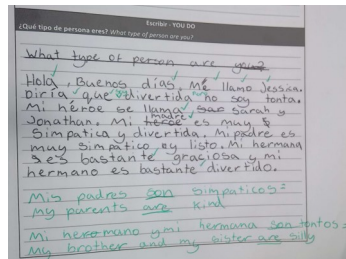 Escribir - YOU DO
¿Qué tipo de persona eres? What type of person are you?
What type of person are you?
Hola, Buenos días, Me llamo Jessica.
Diría que divertida no soy tonta.
Mi héroe se llama sarah y
Jonathan. Mi madre es muy
Simpatica y divertida. Mi padre es
muy simpatico y listo. Mi hermana
es bastante graciosa y mi
hermano es bastante divertido.
Mis padres son simpaticos =
My parents are kind
Mi hermano y mi hermana son tontos =
My brother and my sister are silly